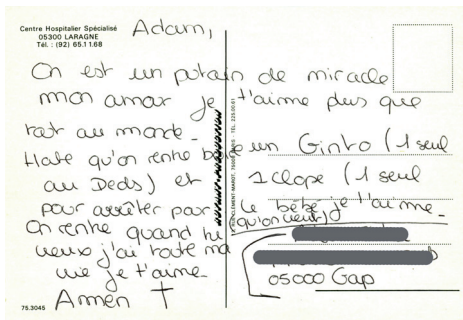 Centre Hospitalier Spécialisé
05300 LARAGNE
Tél. : (92) 65.11.68
Adam,
On est un putain de miracle
mon amour je t'aime plus que
tout au monde_
Hate qu'on rentre boire un Ginto (1 seul
au Deds) et 1 clope (1 seul
pour arrêter pour le bébé je t'aime_
qu'on veut)
On rentre quand tu
veux j'ai toute ma
vie je t'aime_
Amen †
05000 Gap
75.3045